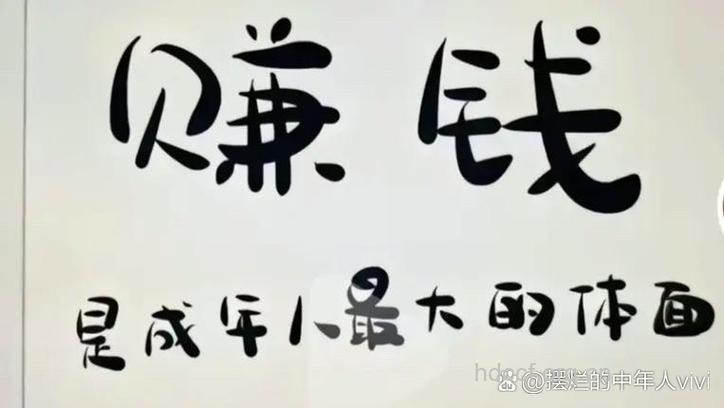 赚钱
是成年人最大的体面
@摆烂的中年人vivi